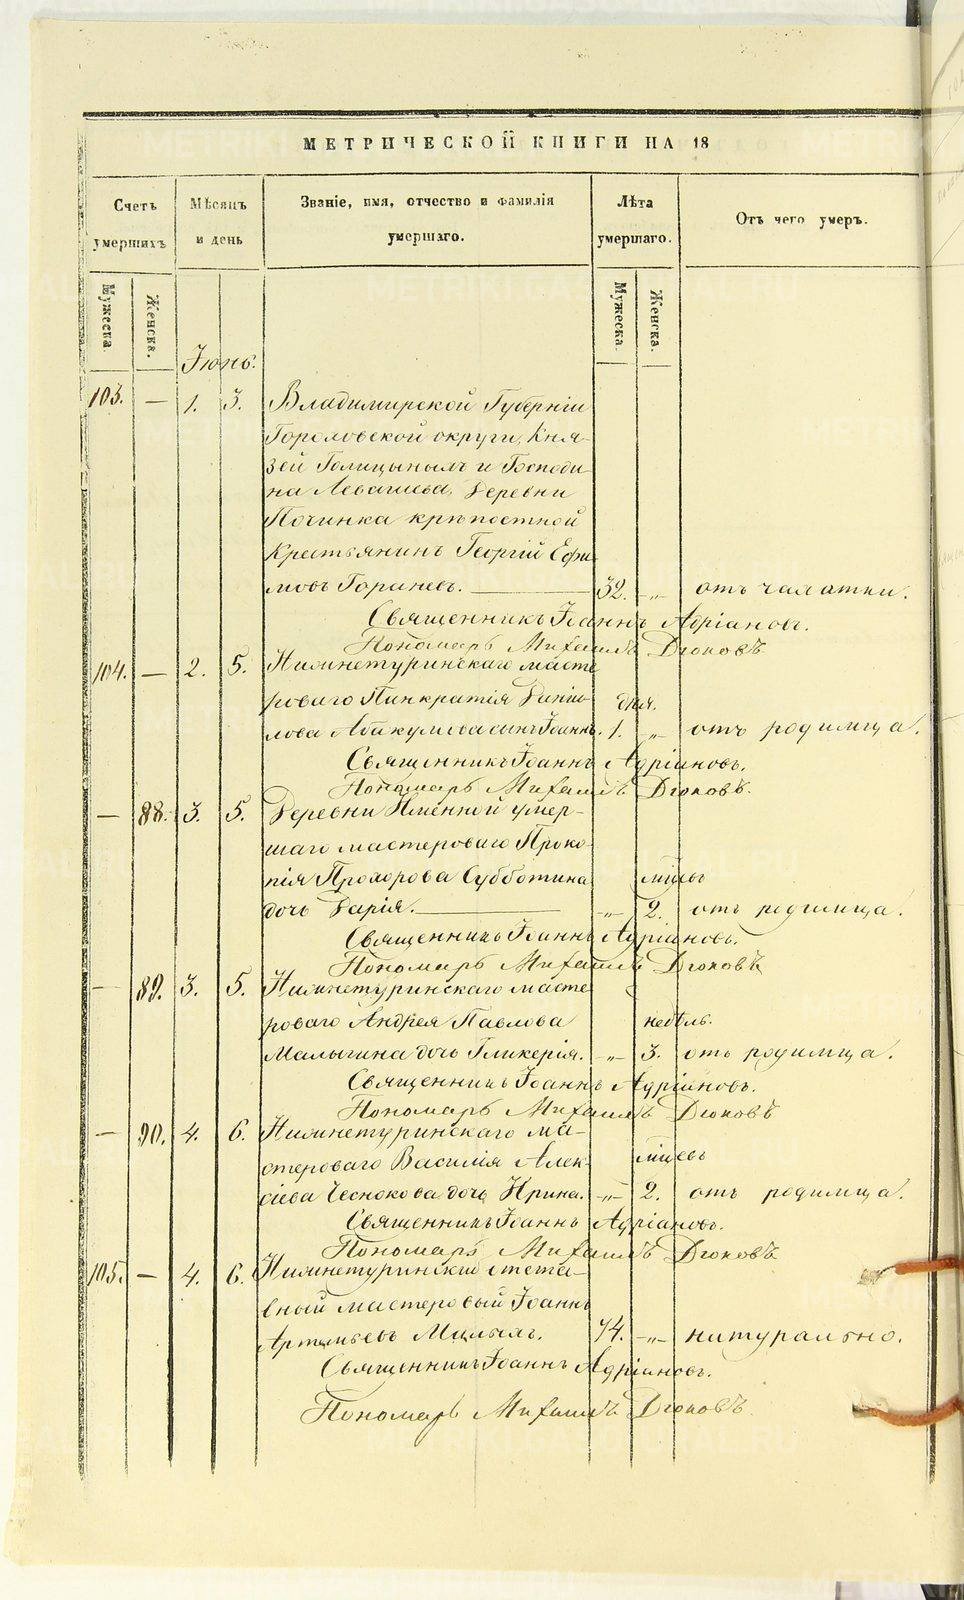 МЕТРИЧЕСКОЙ КНИГИ НА 18
Счетъ умершихъ
Мѣсяцъ и день
Званіе, имя, отчество и фамилія умершаго.
Лѣта умершаго.
Отъ чего умеръ.
Мужеска.
Женска.
Мужеска.
Женска.
Іюнь.
103. — 1. 3. Владимирской Губерніи
Гороховской округи, Кня-
зей Голицынымъ и Господи-
на Левашева, деревни
Починка крѣпостной
крестьянинъ Георгій Ефи-
мовъ Гориневъ. 32. „ отъ чахатки.
Священникъ Іоаннъ Адріановъ.
Пономарь Михаилъ Дюковъ
104. — 2. 5. Нижнетуринскаго масте
роваго Панкратія Даніи- дня.
лова Абакумова сынъ Іоаннъ. 1. „ отъ родимца.
Священникъ Іоаннъ Адріановъ.
Пономарь Михаилъ Дюковъ.
— 88. 3. 5. Деревни Именной умер-
шаго мастероваго Проко-
пія Прохорова Субботина мцы
дочь Дарія. „ 2. отъ родимца.
Священникъ Іоаннъ Адріановъ.
Пономарь Михаилъ Дюковъ
— 89. 3. 5. Нижнетуринскаго масте
роваго Андрея Павлова недѣль.
Малыгина дочь Гликерія. „ 3. отъ родимца.
Священникъ Іоаннъ Адріановъ.
Пономарь Михаилъ Дюковъ
— 90. 4. 6. Нижнетуринскаго ма-
стероваго Василія Алек- мцевъ
сіева Чеснокова дочь Ирина. „ 2. отъ родимца.
Священникъ Іоаннъ Адріановъ.
Пономарь Михаилъ Дюковъ
105. — 4. 6. Нижнетуринскій отста-
вный мастеровый Іоаннъ
Артемьевъ 74. „ натурально.
Священникъ Іоаннъ Адріановъ.
Пономарь Михаилъ Дюковъ
METRIKI.GASO-URAL.RU